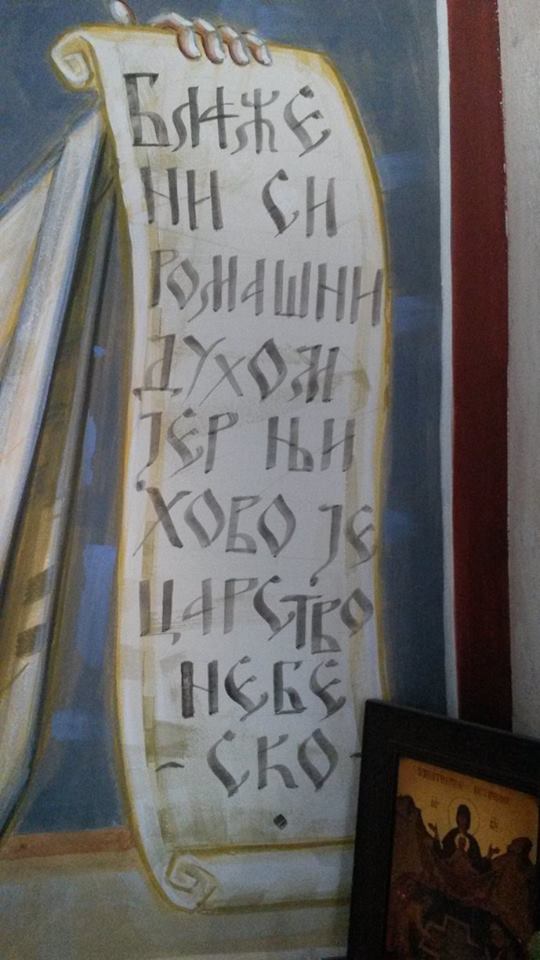 БЛАЖЕ
НИ СИ
РОМАШНИ
ДУХОМ
ЈЕР ЊИ
ХОВО ЈЕ
ЦАРСТВО
НЕБЕ
- СКО -